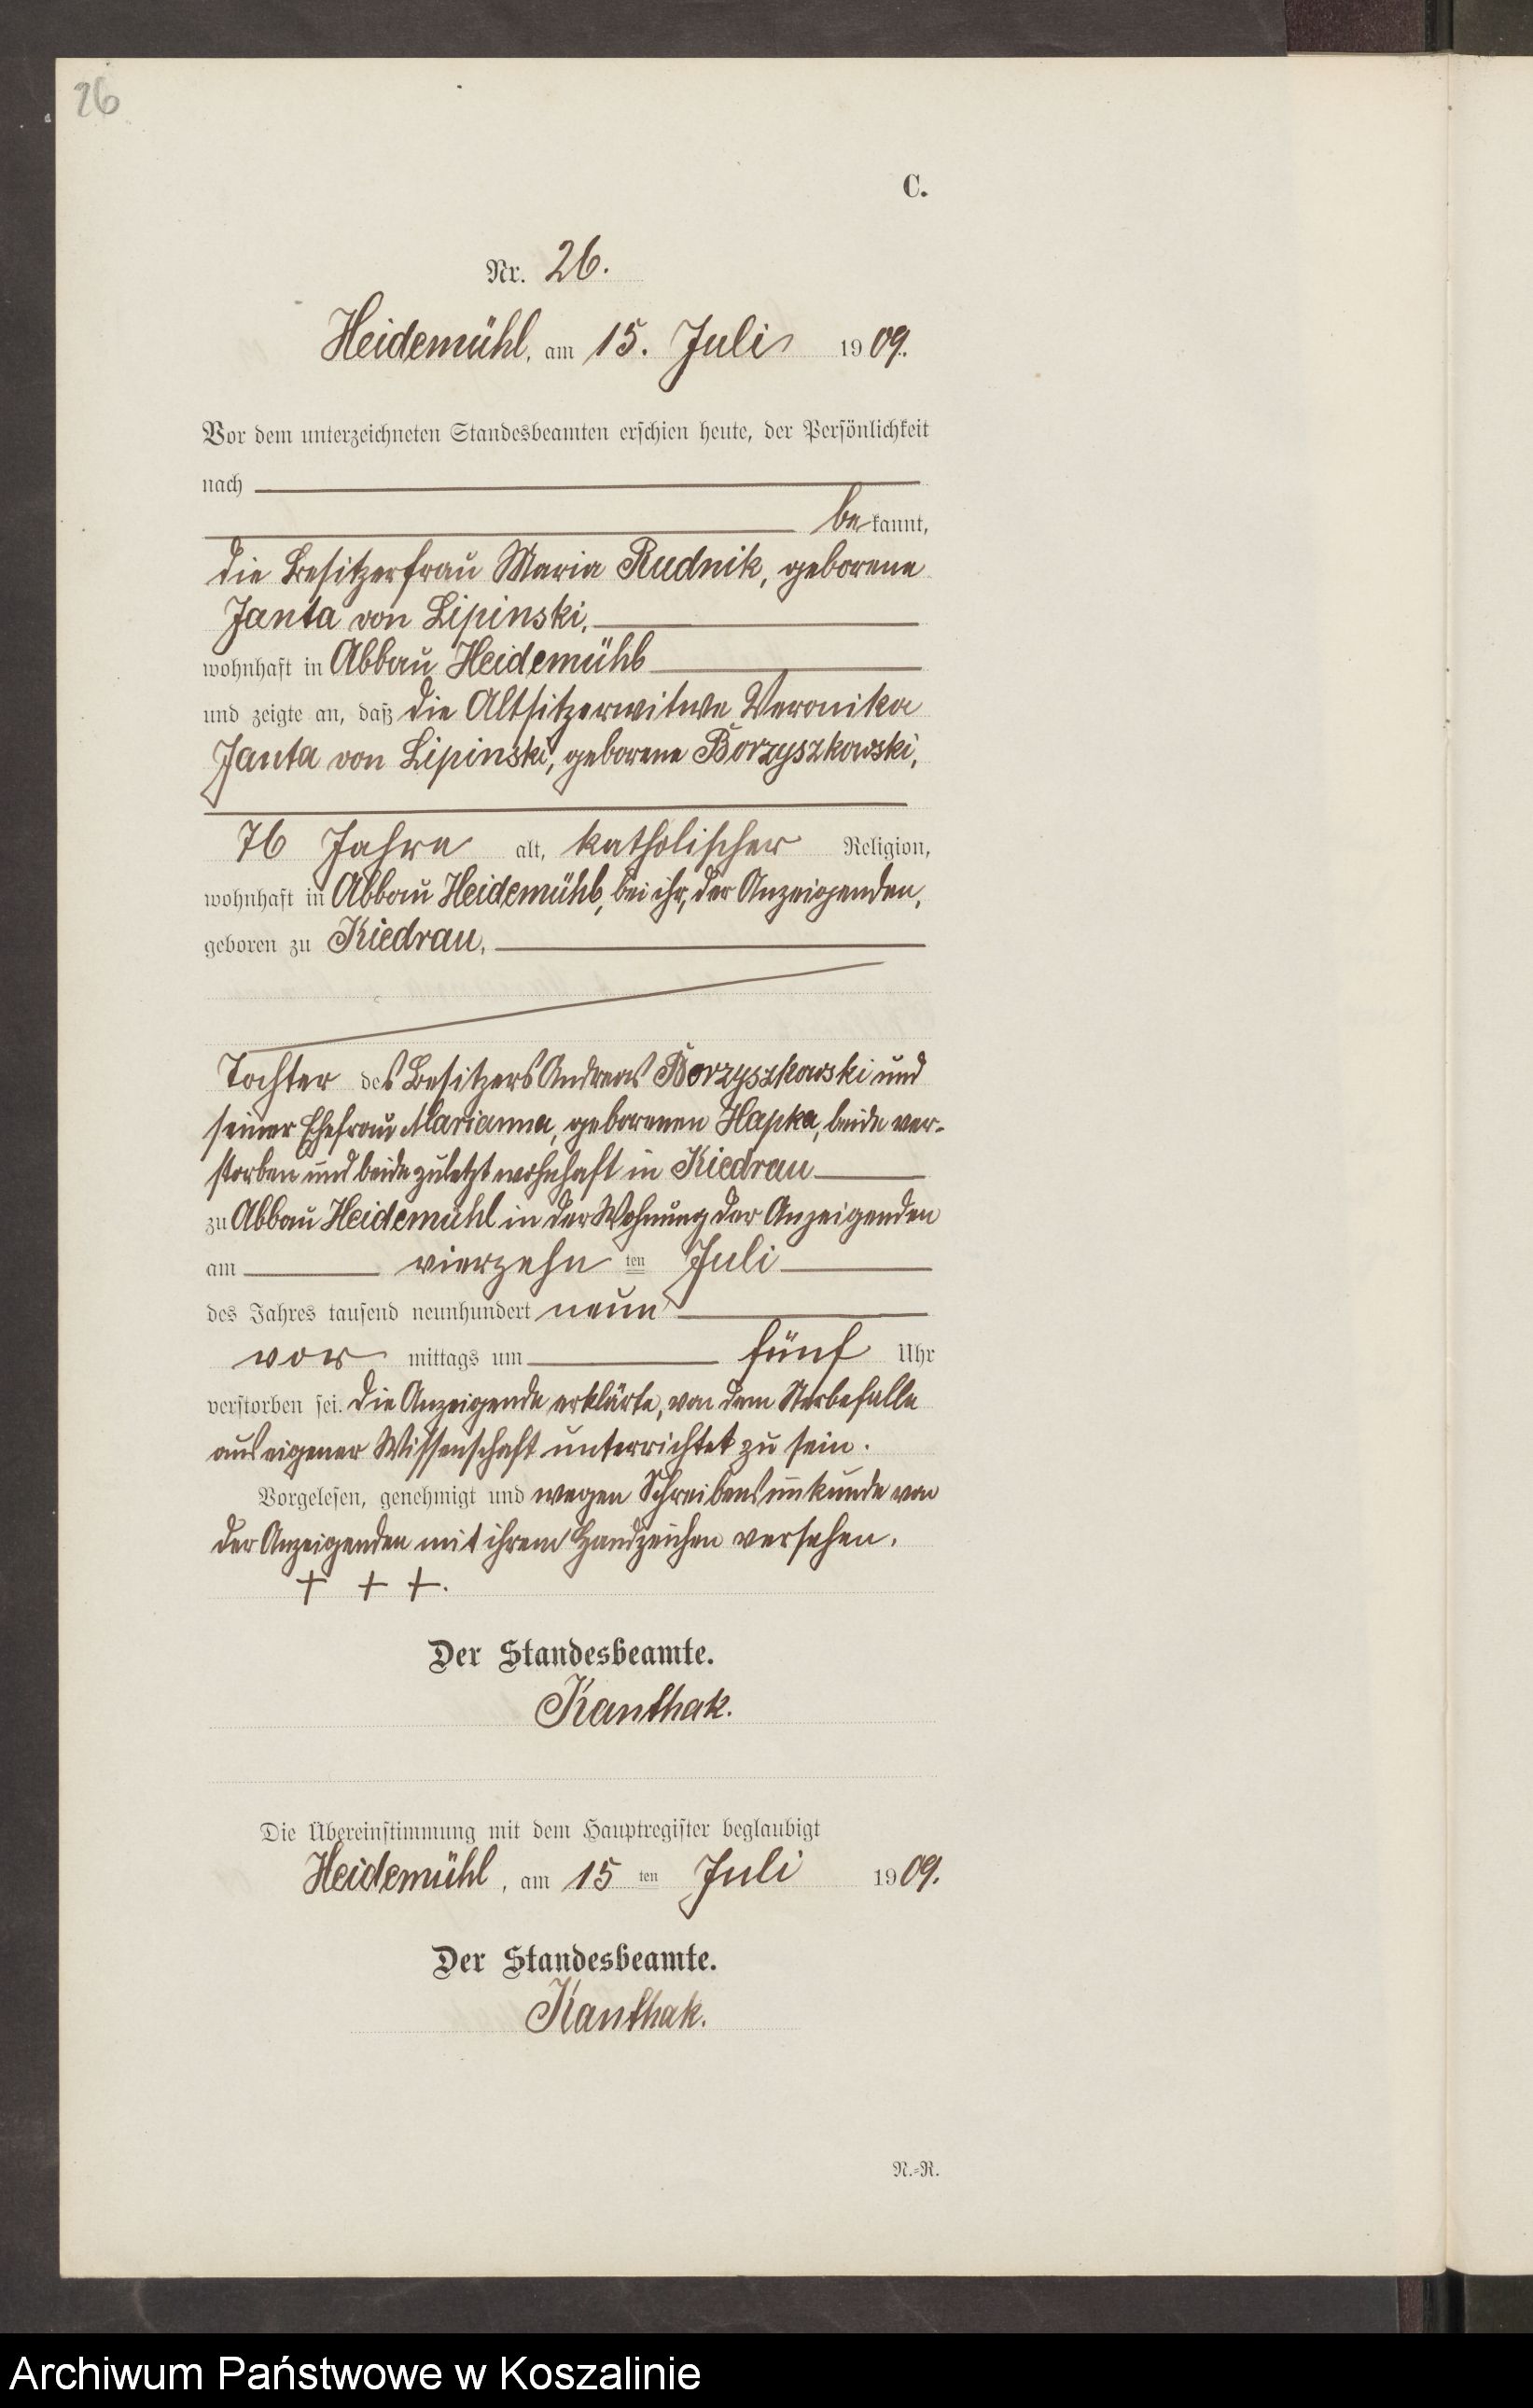 26
C.
Nr. 26.
Heidemühl, am 15. Juli 1909.
Vor dem unterzeichneten Standesbeamten erschien heute, der Persönlichkeit
nach
bekannt,
die Besitzerfrau Maria Rudnik, geborene
Janta von Lipinski,
wohnhaft in Abbau Heidemühl
und zeigte an, daß die Altsitzerwitwe Veronika
Janta von Lipinski, geborene Borzyszkowski,
76 Jahre alt, katholischer Religion,
wohnhaft in Abbau Heidemühl, bei ihr, der Anzeigenden,
geboren zu Kiedrau,
Tochter des Besitzers Andreas Borzyszkowski und
seiner Ehefrau Marianna, geborenen Hapka, beide ver-
storben und beide zuletzt wohnhaft in Kiedrau
zu Abbau Heidemühl in der Wohnung der Anzeigenden
am vierzehn ten Juli
des Jahres tausend neunhundert neun
vor mittags um fünf Uhr
verstorben sei. Die Anzeigende erklärte, von dem Sterbefalle
aus eigener Wissenschaft unterrichtet zu sein.
Vorgelesen, genehmigt und wegen Schreibensunkunde von
der Anzeigenden mit ihrem Handzeichen versehen.
+ + +.
Der Standesbeamte.
Kanthak.
Die Übereinstimmung mit dem Hauptregister beglaubigt
Heidemühl, am 15 ten Juli 1909.
Der Standesbeamte.
Kanthak.
N.-R.
Archiwum Państwowe w Koszalinie